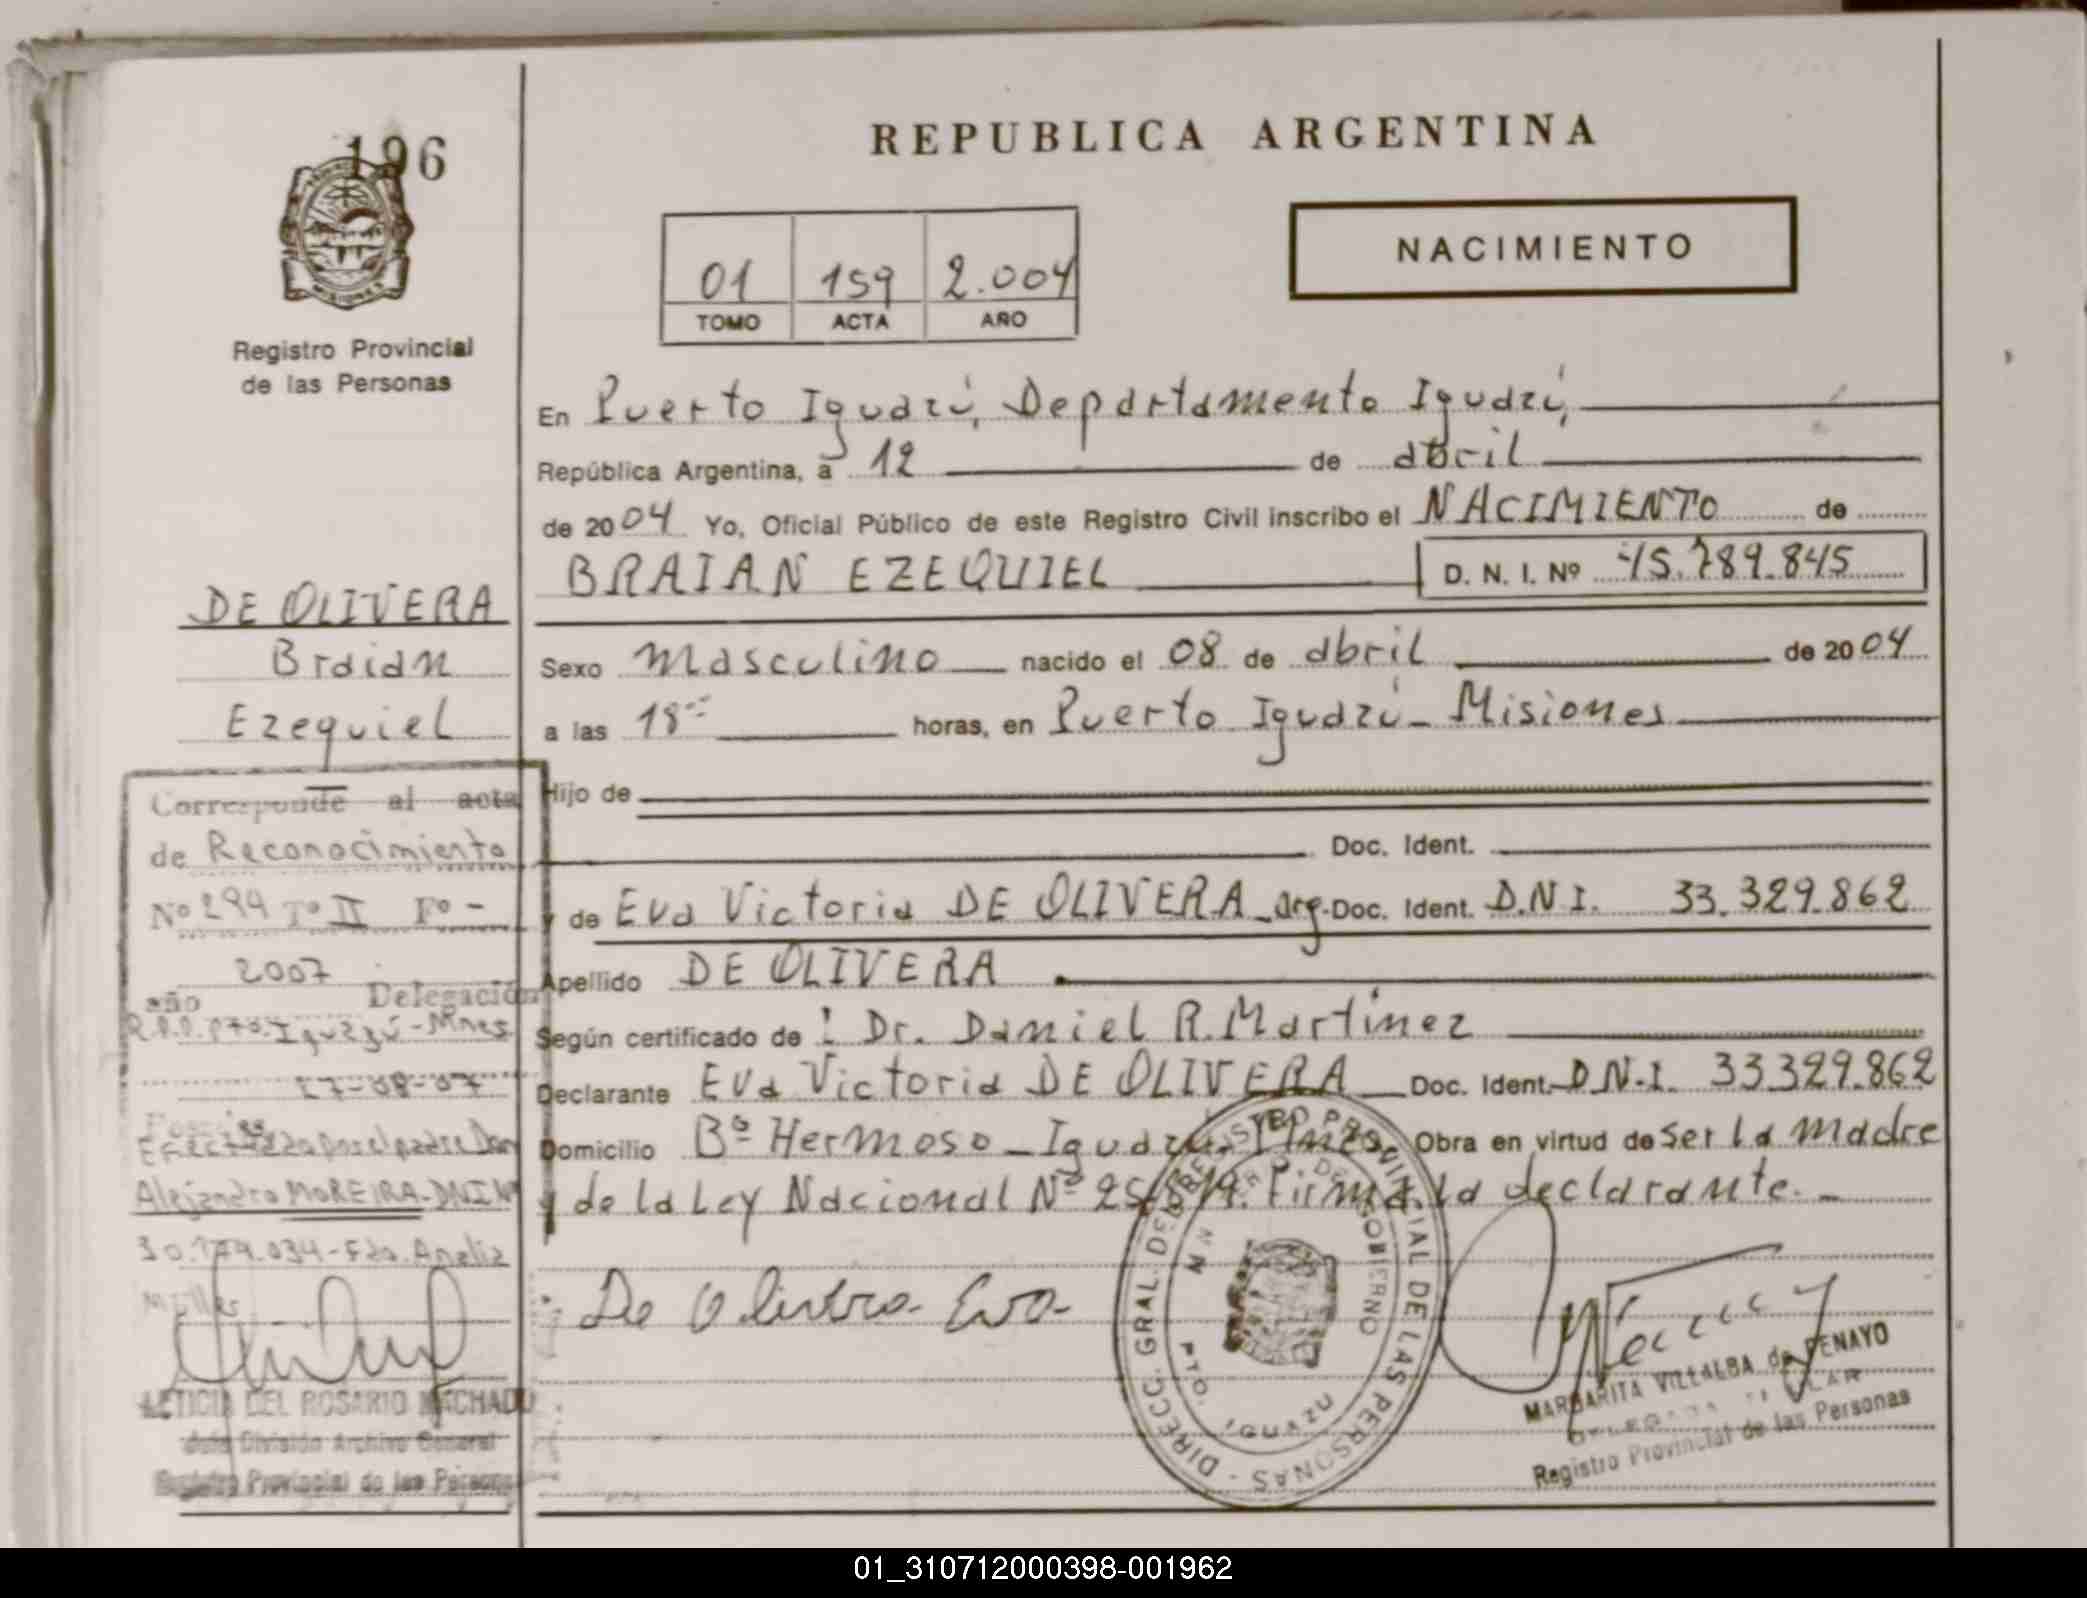 196
REPUBLICA ARGENTINA
NACIMIENTO
01 159 2.004
TOMO ACTA AÑO
Registro Provincial
de las Personas
En Puerto Iguazú, Departamento Iguazú,
República Argentina, a 12 de abril
de 2004 Yo, Oficial Público de este Registro Civil inscribo el NACIMIENTO de
BRAIAN EZEQUIEL D. N. I. Nº 45.789.845
DE OLIVERA
Braian
Ezequiel
Sexo masculino nacido el 08 de abril de 2004
a las 18 horas, en Puerto Iguazú - Misiones
Hijo de
Doc. Ident.
y de Eva Victoria DE OLIVERA - arg. Doc. Ident. D.N.I. 33.329.862
Apellido DE OLIVERA
Según certificado de : Dr. Daniel R. Martinez
Declarante Eva Victoria DE OLIVERA Doc. Ident. D.N.I. 33.329.862
Domicilio Bº Hermoso - Iguazú, Mnes. Obra en virtud de ser la madre
y de la Ley Nacional Nº Firma la declarante. -
De Olivera Eva
Corresponde al acta
de Reconocimiento
Nº 294 Tº II Fº -
2007
año Delegación
Iguazú - Mnes
17-08-07
Efectuado por el padre Don
Alejandro MOREIRA - DNI Nº
30.174.034 - Fdo. Analia
Miller
LETICIA DEL ROSARIO MACHADO
Jefe División Archivo General
Registro Provincial de las Personas
DIRECC. GRAL. DEL REGISTRO PROVINCIAL DE LAS PERSONAS -
DE GOBIERNO
PTO. IGUAZU
MARGARITA VILLALBA de PENAYO
DELEGADA TITULAR
Registro Provincial de las Personas
01_310712000398-001962